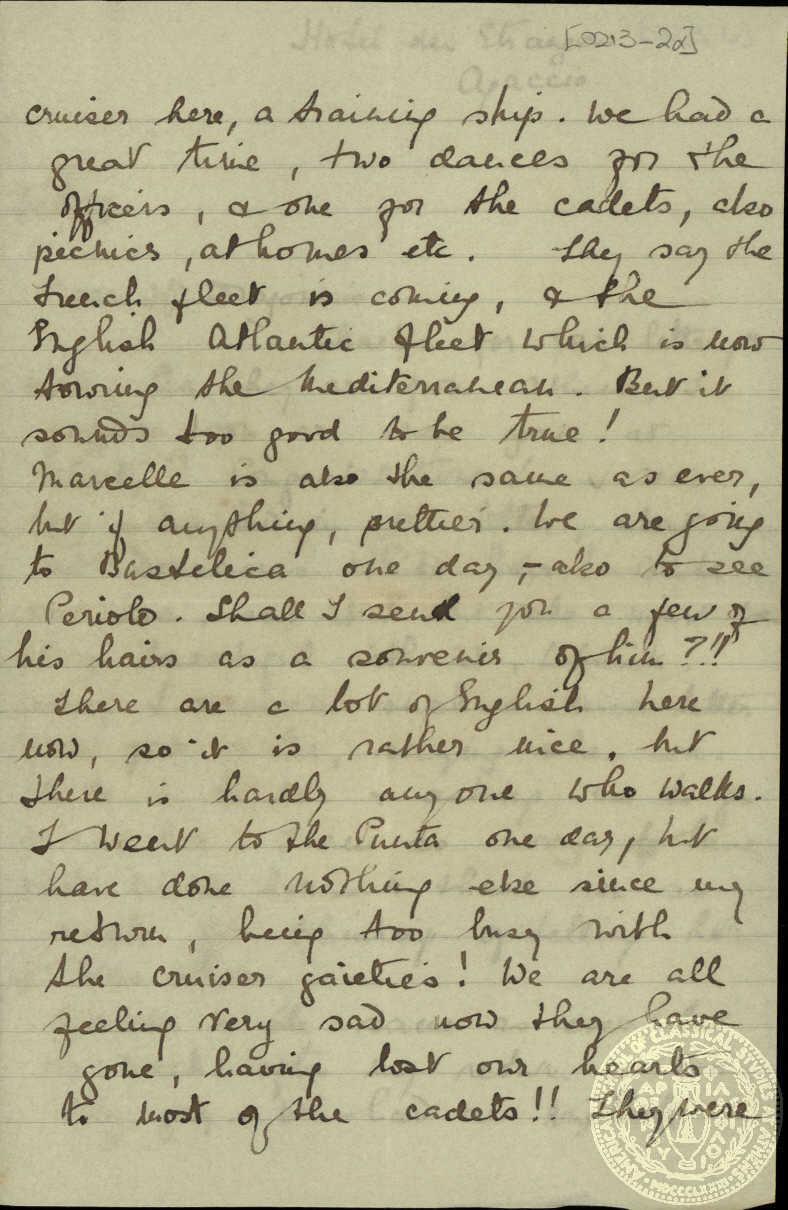 [0213-2α]
cruiser here, a training ship. We had a
great time, two dances for the
officers, & one for the cadets, also
picnics, at homes etc. They say the
French fleet is coming, & the
English Atlantic fleet which is now
towring the Mediterranean. But it
sounds too good to be true!
Marcelle is also the same as ever,
but if anything, prettier. We are going
to Bastelica one day, - also to see
Periolo. Shall I send you a few of
his hairs as a souvenir of him?!!
There are a lot of English here
now, so it is rather nice, but
there is hardly any one who walks.
I went to the Punta one day, but
have done nothing else since my
return, being too busy with
the cruiser gaieties! We are all
feeling very sad now they have
gone, having lost our hearts
to most of the cadets!! They were